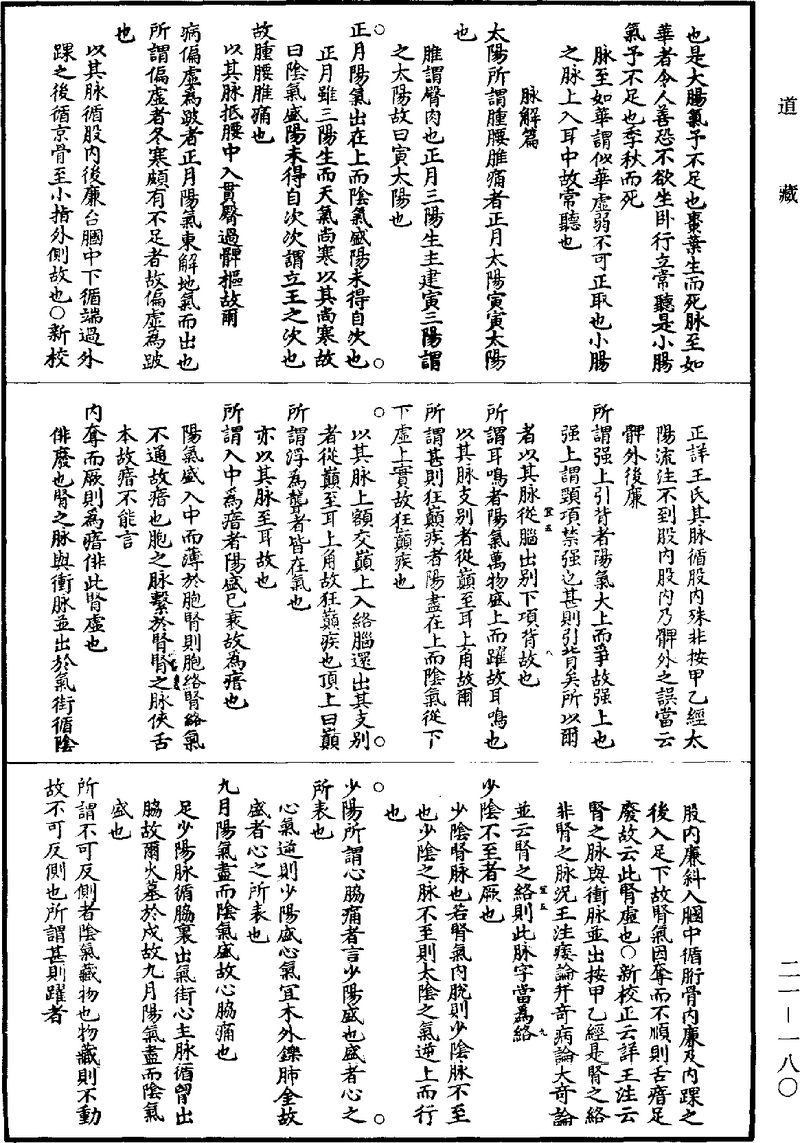 道藏
二一—一八〇
也是大腸氣予不足也棗葉生而死脉至如
華者令人善恐不欲坐卧行立常聽是小腸
氣予不足也季秋而死
脉至如華謂似華虛弱不可正取也小腸
之脉上入耳中故常聽也
脉解篇
太陽所謂腫腰脽痛者正月太陽寅寅太陽
也
脽謂臀肉也正月三陽生主建寅三陽謂
之太陽故曰寅太陽也
正月陽氣出在上而陰氣盛陽未得自次也
正月雖三陽生而天氣尚寒以其尚寒故
曰陰氣盛陽未得自次次謂立王之次也
故腫腰脽痛也
以其脉抵腰中入貫臀過髀樞故爾
病偏虛為跛者正月陽氣東解地氣而出也
所謂偏虛者冬寒頗有不足者故偏虛為跛
也
以其脉循股內後廉合膕中下循端過外
踝之後循京骨至小指外側故也○新校
正詳王氏其脉循股內殊非按甲乙經太
陽流注不到股內股內乃髀外之誤當云
髀外後廉
所謂强上引背者陽氣大上而爭故强上也
强上謂頸項禁强也甚則引背矣所以爾
者以其脉從腦出别下項背故也
所謂耳鳴者陽氣萬物盛上而躍故耳鳴也
以其脉支别者從巔至耳上角故爾
所謂甚則狂巔疾者陽盡在上而陰氣從下
下虛上實故狂巔疾也
以其脉上額交巔上入絡腦還出其支别
者從巔至耳上角故狂巔疾也頂上曰巔
所謂浮為聾者皆在氣也
亦以其脉至耳故也
所謂入中為瘖者陽盛已衰故為瘖也
陽氣盛入中而薄於胞腎則胞絡腎絡氣
不通故瘖也胞之脉繫於腎腎之脉俠舌
本故瘖不能言
內奪而厥則為瘖俳此腎虛也
俳廢也腎之脉與衝脉並出於氣街循陰
股內廉斜入膕中循胻骨內廉及內踝之
後入足下故腎氣因奪而不順則舌瘖足
廢故云此腎虛也○新校正云詳王注云
腎之脉與衝脉並出按甲乙經是腎之絡
非腎之脉況王注痿論并奇病論大奇論
並云腎之絡則此脉字當為絡
少陰不至者厥也
少陰腎脉也若腎氣內脫則少陰脉不至
也少陰之脉不至則太陰之氣逆上而行
也
少陽所謂心脇痛者言少陽盛也盛者心之
所表也
心氣逆則少陽盛心氣宜木外鑠肺金故
盛者心之所表也
九月陽氣盡而陰氣盛故心脇痛也
足少陽脉循脇裏出氣街心主脉循胷出
脇故爾火墓於戌故九月陽氣盡而陰氣
盛也
所謂不可反側者陰氣藏物也物藏則不動
故不可反側也所謂甚則躍者